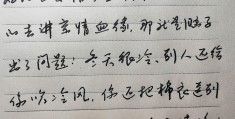 心去讲亲情血缘，那就是脑子
出了问题：冬天很冷，别人还给
你吹冷风，你还把棉衣送到